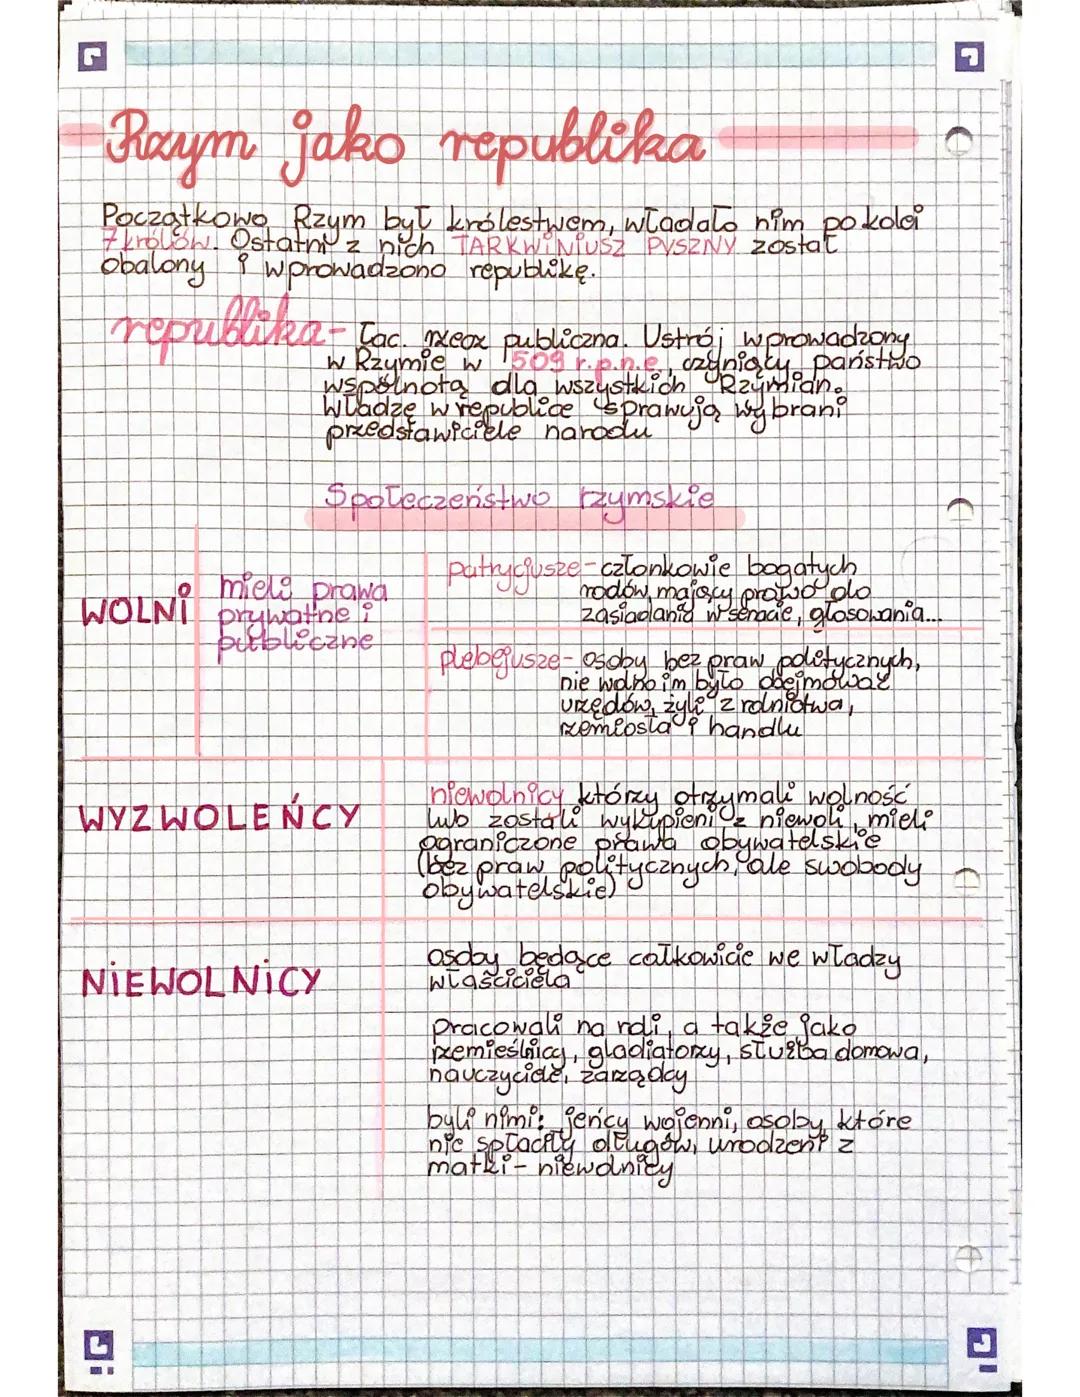 Rzym jako republika
Początkowo Rzym był królestwem, władało nim po kolei
7 królów. Ostatni z nich TARKWiNiUSZ PYSZNY został
obalony i wprowadzono republikę.
republika - łac. publiczna. Ustrój wprowadzony
w Rzymie w 509 r.p.n.e, czyniący państwo
wspólnotą dla wszystkich Rzymian.
Władzę w republice sprawują wybrani
przedstawiciele narodu
Społeczeństwo rzymskie
WOLNi
mieli prawa
prywatne i
publiczne
patrycjusze - członkowie bogatych
rodów, mający prawo do
zasiadania w senacie, głosowania...
plebejusze - osoby bez praw politycznych,
nie wolno im było obejmować
urzędów, żyli z rolnictwa,
rzemiosła i handlu
WYZWOLEŃCY
niewolnicy którzy otrzymali wolność
lub zostali wykupieni z niewoli, mieli
ograniczone prawa obywatelskie
(bez praw politycznych, ale swobody
obywatelskie)
NiEWOLNiCY
osoby będące całkowicie we władzy
właściciela
pracowali na roli, a także jako
rzemieślnicy, gladiatorzy, służba domowa,
nauczyciele, zarządcy
byli nimi: jeńcy wojenni, osoby, które
nie spłaciły długów, urodzeni z
matki - niewolnicy